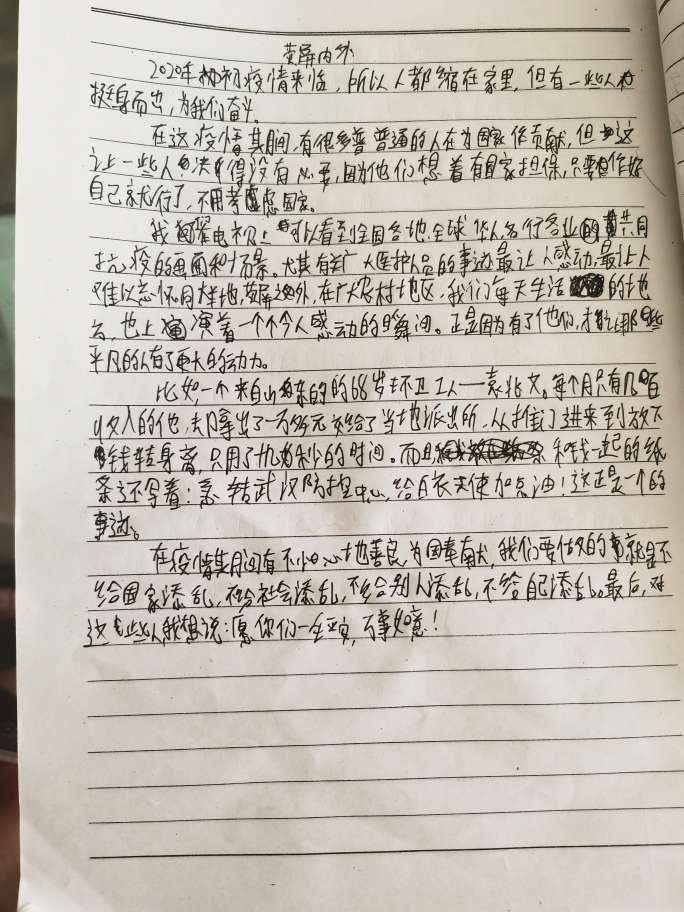 荧屏内外
2020年初疫情来临，所以人都缩在家里，但有一些人
挺身而出，为我们奋斗。
在这疫情其间，有很多普普通的人在为国家作贡献，但这
让一些人觉得没有必要，因为他们想着有国家担保，只要作好
自己就行了，不用考虑国家。
我从电视上可以看到全国各地、全球华人各行各业的共同
抗疫的画面和场景。尤其有关广大医护人员的事迹最让人感动，最让人
难以忘怀。同样地，荧屏外，在广大农村地区，我们每天生活的地
方，也上演着一个个令人感动的瞬间。正是因为有了他们，才能让那些
平凡的人有了更大的动力。
比如，一个来自山东的的68岁环卫工人——袁兆文。每个月只有几百
收入的他，却拿出了一万多元交给了当地派出所，从推门进来到放下
钱转身离，只用了九秒的时间。而和钱一起的纸
条还写着：急转武汉防控中心，给白衣天使加点油！这正是一个的
事迹。
在疫情其间有不少心地善良，为国奉献，我们要做的事就是不
给国家添乱，不给社会添乱，不给别人添乱，不给自己添乱。最后，对
这些人我想说：愿你们一生平安，万事如意！